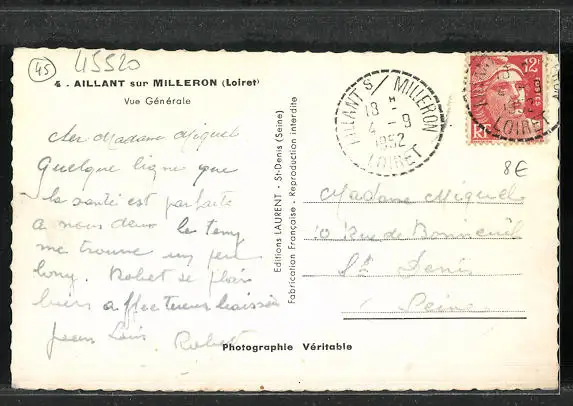 45
45520
4 - AILLANT sur MILLERON (Loiret)
Vue Générale
Cher Madame Miguel
Quelque ligne que
la santé est parfaite
a nous deux le temp
me trouve un peu
long. Robet se plais
bien affectueux baisser
Jean Louis
Robert
Editions LAURENT - St-Denis (Seine)
Fabrication Française - Reproduction interdite
Photographie Véritable
AILLANT S/ MILLERON
18 H
4 - 9
1952
LOIRET
12F
POSTES
RF
LOIRET
8€
Madame Miguel
10 Rue de Bonneuil
St Denis
Seine